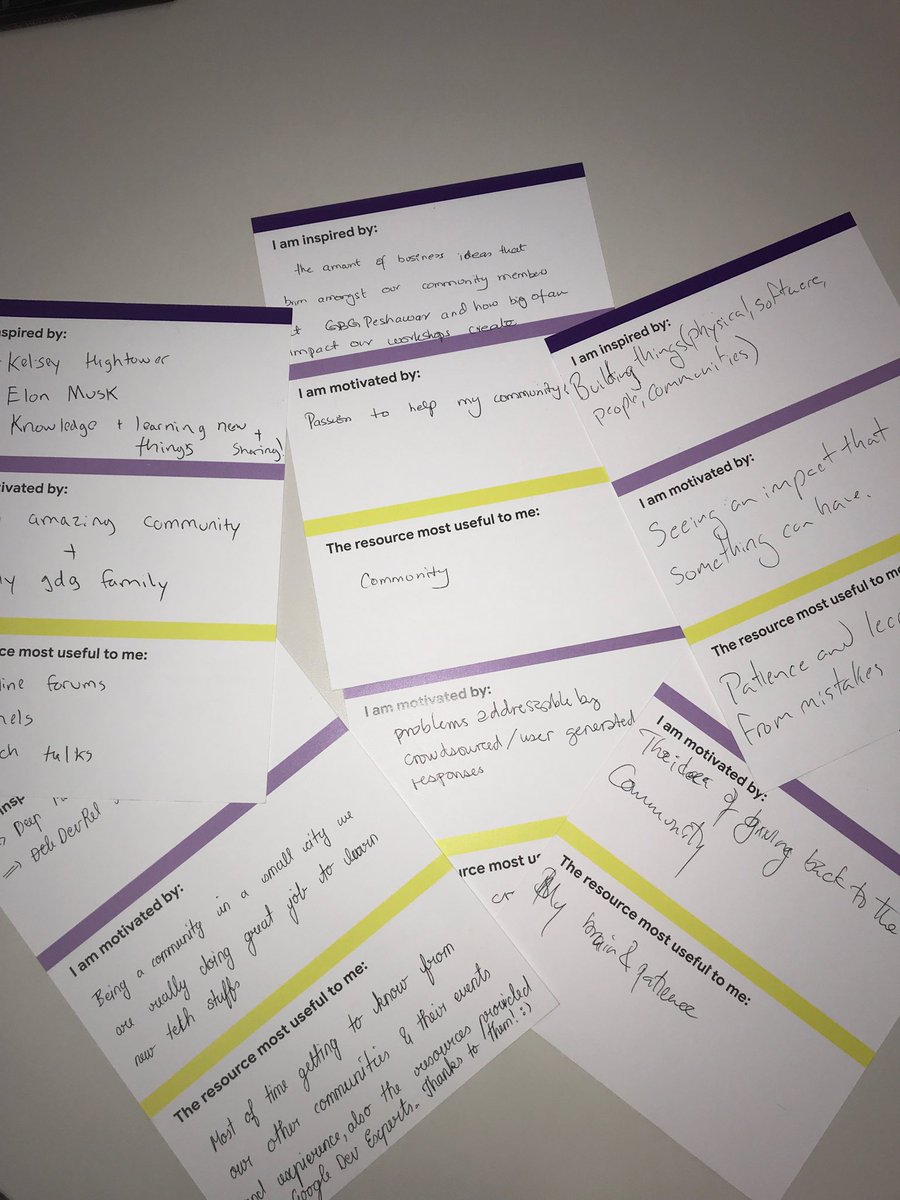 I am inspired by:
the amount of business ideas that
brim amongst our community members
GBG Peshawar and how big of an
impact our workshops create
I am motivated by:
Passion to help my community
The resource most useful to me:
Community
nspired by:
Kelsey Hightower
Elon Musk
Knowledge + learning new +
things sharing!
tivated by:
amazing community
+
gdg family
ce most useful to me:
line forums
nels
ch talks
I am inspired by:
Building things (physical, software,
people, communities)
I am motivated by:
Seeing an impact that
something can have.
The resource most useful to me
Patience and lea
from mistakes
I am motivated by:
problems addressable by
crowdsourced/user generated
responses
urce most us
I am motivated by:
The idea of giving back to the
Community
The resource most useful to me:
My brain & patience
insp
=> Deep
DevRel
I am motivated by:
Being a community in a small city we
are really doing great job to learn
new teth stuffs
The resource most useful to me:
Most of time getting to know from
our other communities & their events
and expierence, also the resources provided
Google Dev Experts. Thanks to them! :)